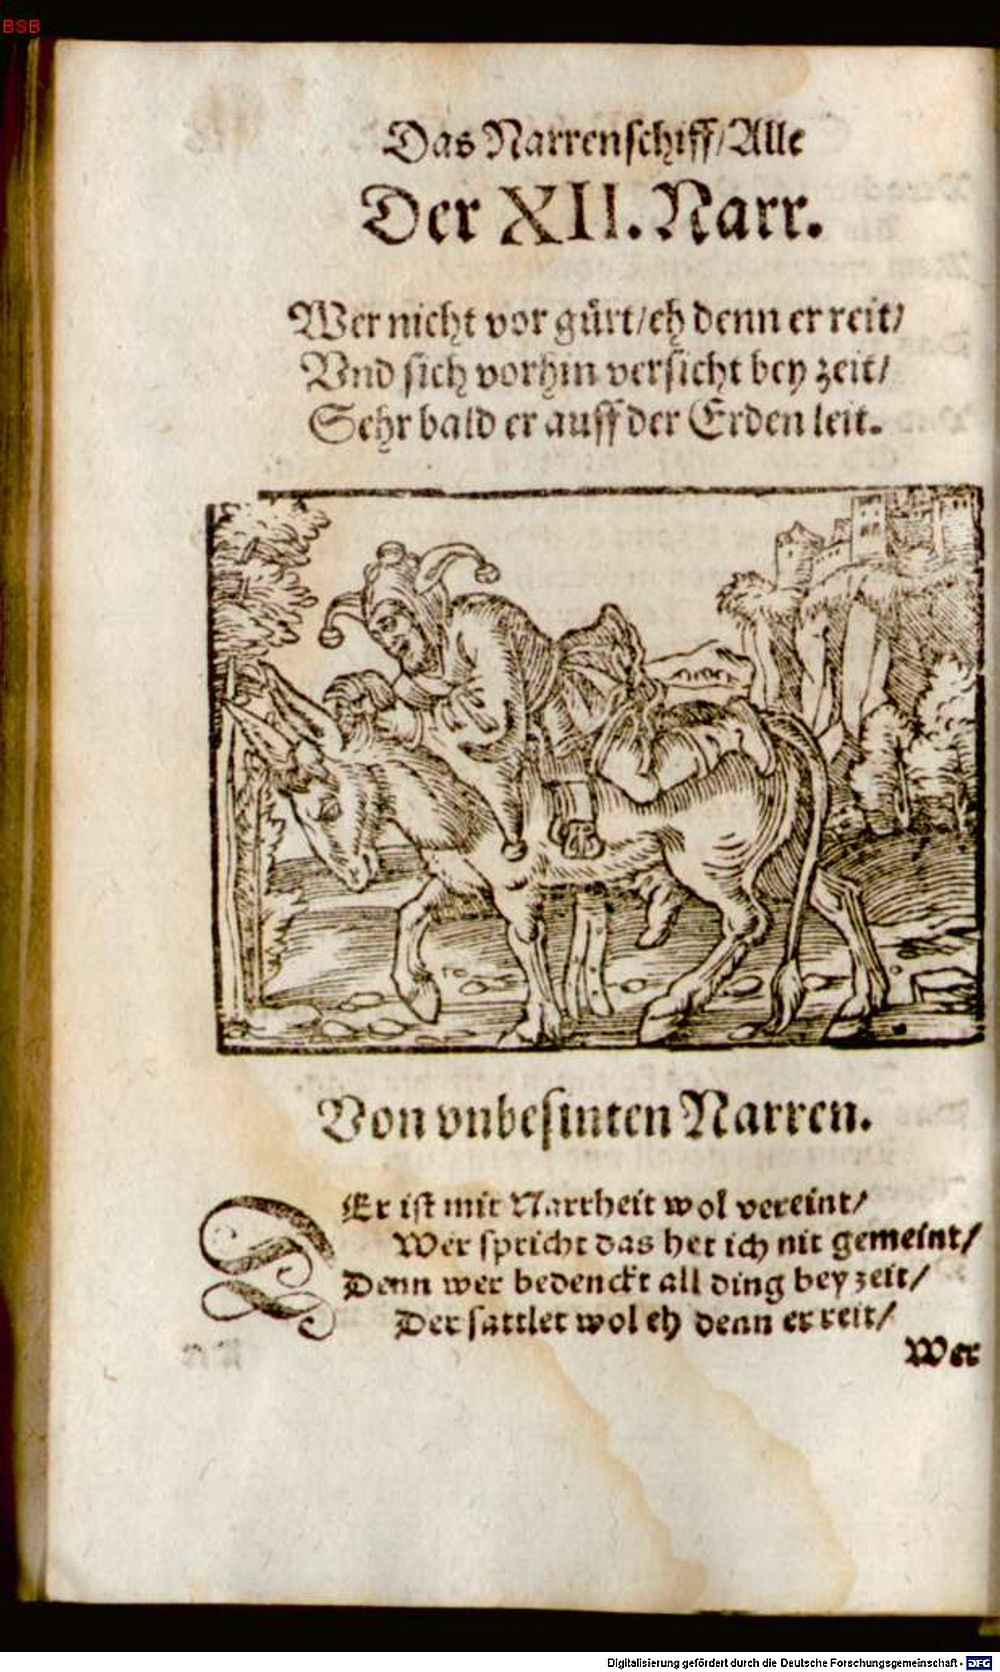 BSB
Das Narrenschiff/Alle
Der XII. Narr.
Wer nicht vor gürt/eh denn er reit/
Vnd sich vorhin versicht bey zeit/
Sehr bald er auff der Erden leit.
Von vnbesinten Narren.
DEr ist mit Narrheit wol vereint/
Wer spricht das het ich nit gemeint/
Denn wer bedenckt all ding bey zeit/
Der sattlet wol eh denn er reit/
Wer
Digitalisierung gefördert durch die Deutsche Forschungsgemeinschaft - DFG